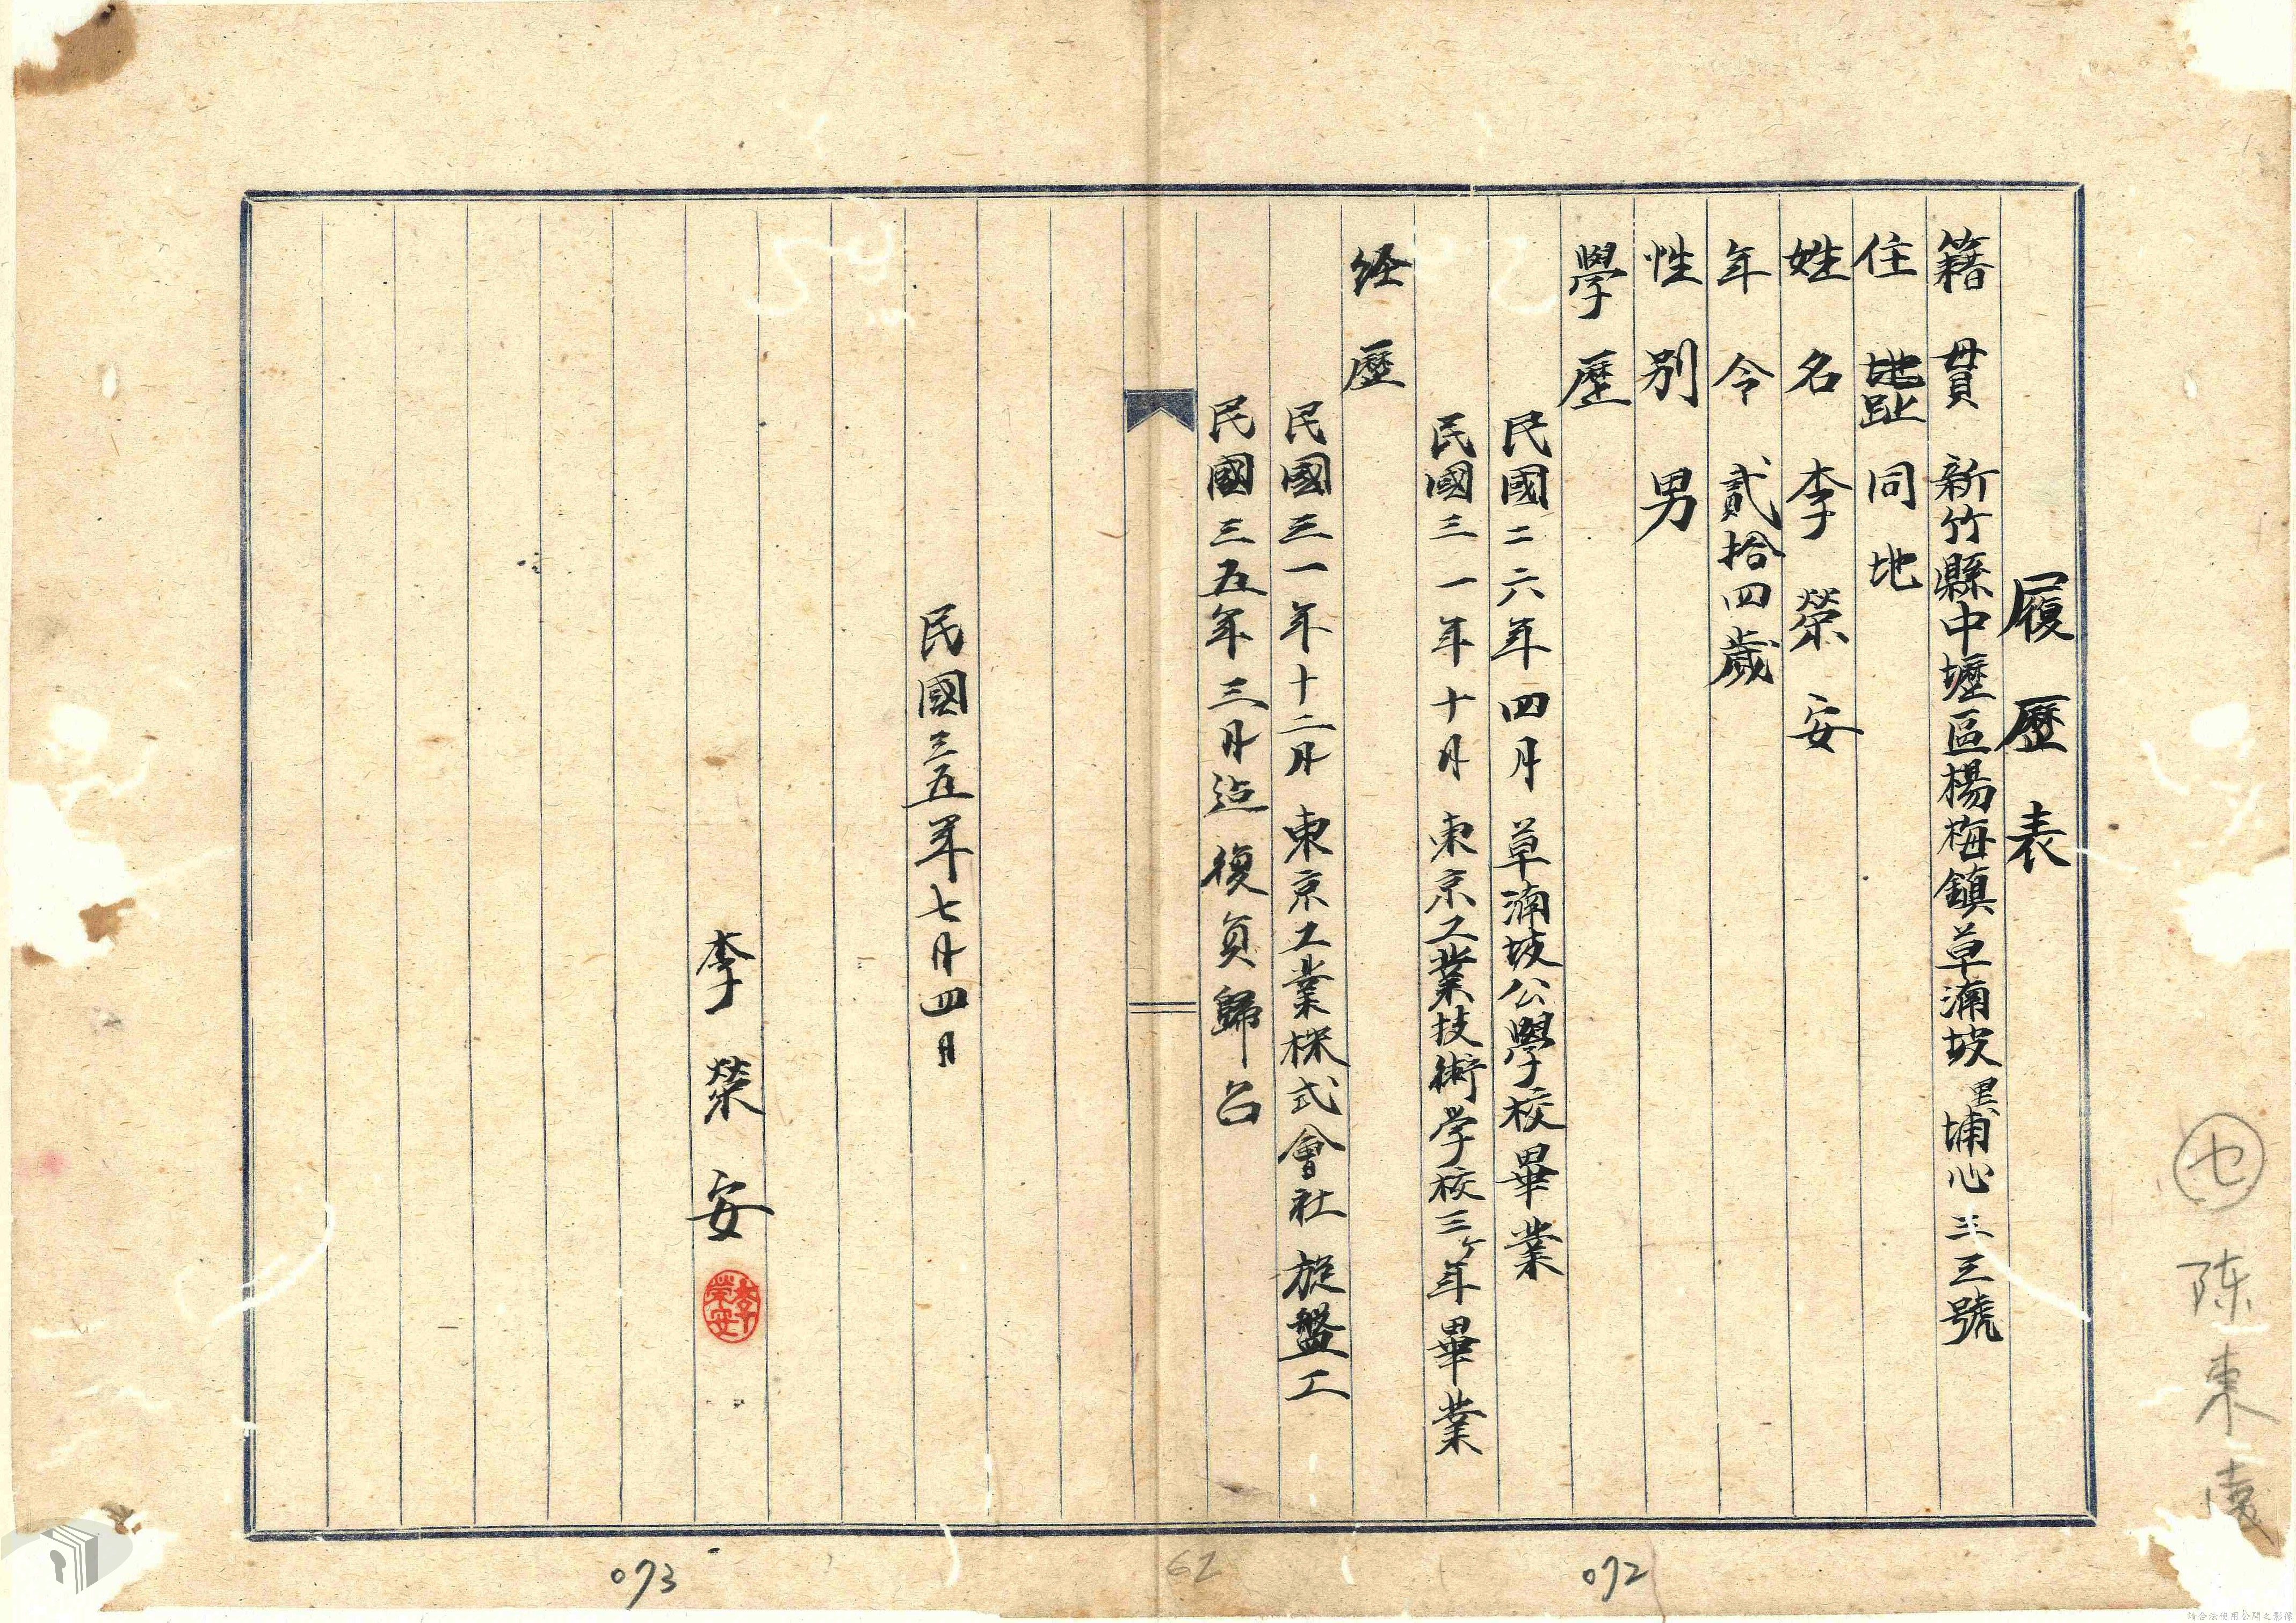 履歷表
籍貫 新竹縣中壢區楊梅鎮草湳坡里埔心三三號
住址 同地
姓名 李榮安
年令 貳拾四歲
性別 男
學歷
民國二六年四月 草湳坡公學校畢業
民國三一年十月 東京工業技術学校三ヶ年畢業
経歷
民國三一年十二月 東京工業株式會社 旋盤工
民國三五年三月 復員歸台
民國三五年七月四日
李榮安
李榮安
七
陈東遠
072
62
073
請合法使用公開之影像